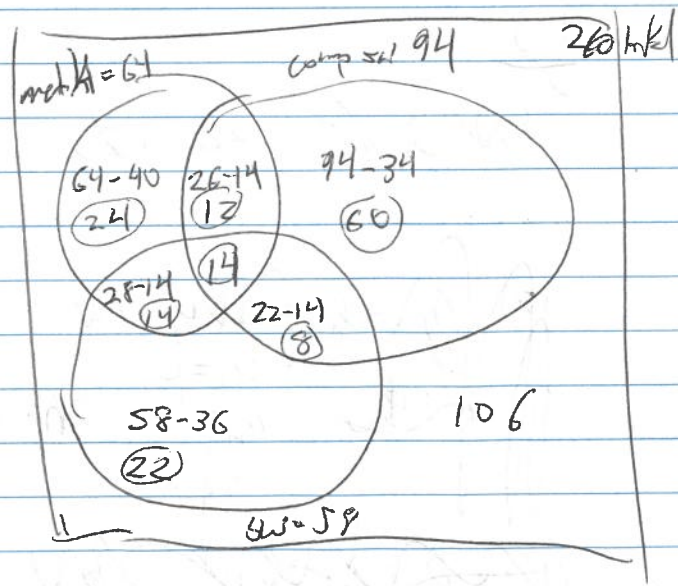 math = 64
comp sci 94
260 total
64-40
24
26-14
12
94-34
60
14
28-14
14
22-14
8
58-36
22
106
bus = 58